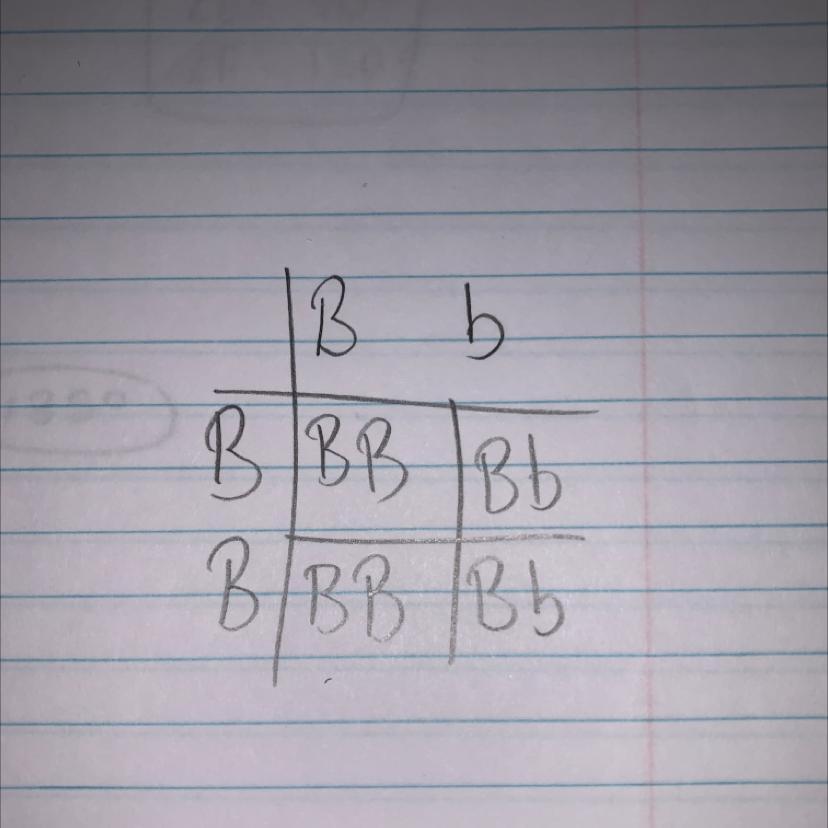 B b
B BB Bb
B BB Bb